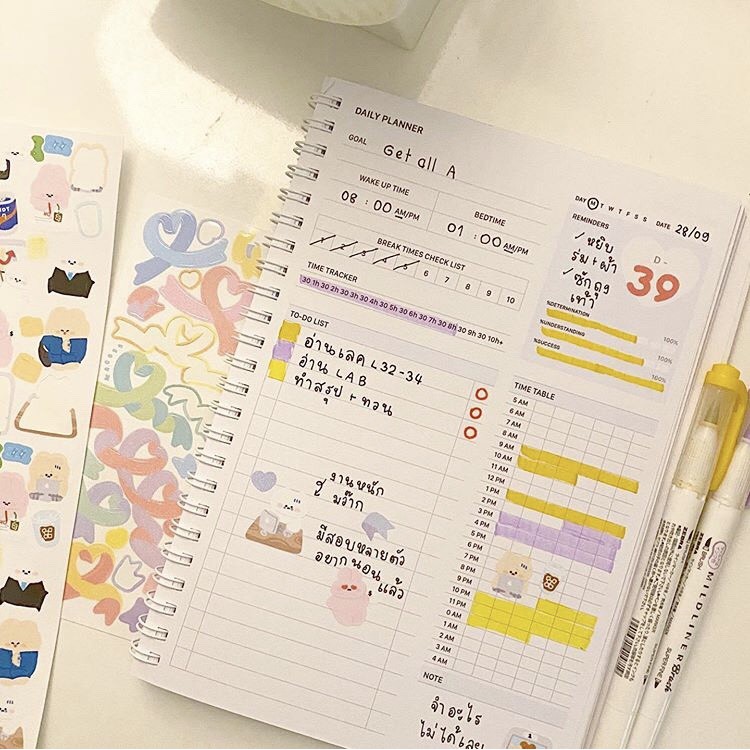 DAILY PLANNER
GOAL Get all A
DAY M T W T F S S DATE 28/09
WAKE UP TIME
08 : 00 AM/PM
BEDTIME
01 : 00 AM/PM
BREAK TIMES CHECK LIST
1 2 3 4 5 6 7 8 9 10
TIME TRACKER
30 1h 30 2h 30 3h 30 4h 30 5h 30 6h 30 7h 30 8h 30 9h 30 10h+
REMINDERS
✓ หยิบ
ร่ม + ผ้า
✓ ซักถุง
เท้า
D-
39
%DETERMINATION
100%
%UNDERSTANDING
100%
%SUCCESS
100%
TO-DO LIST
อ่านเลค L32-34
อ่าน LAB
ทำสรุป + ทวน
งานหนัก
มีสอบหลายตัว
อยากนอนแล้ว
TIME TABLE
5 AM
6 AM
7 AM
8 AM
9 AM
10 AM
11 AM
12 AM
1 PM
2 PM
3 PM
4 PM
5 PM
6 PM
7 PM
8 PM
9 PM
10 PM
11 PM
0 AM
1 AM
2 AM
3 AM
4 AM
NOTE
จำอะไร
ไม่ได้เลย
ZEBRA
MILDLINER Brush